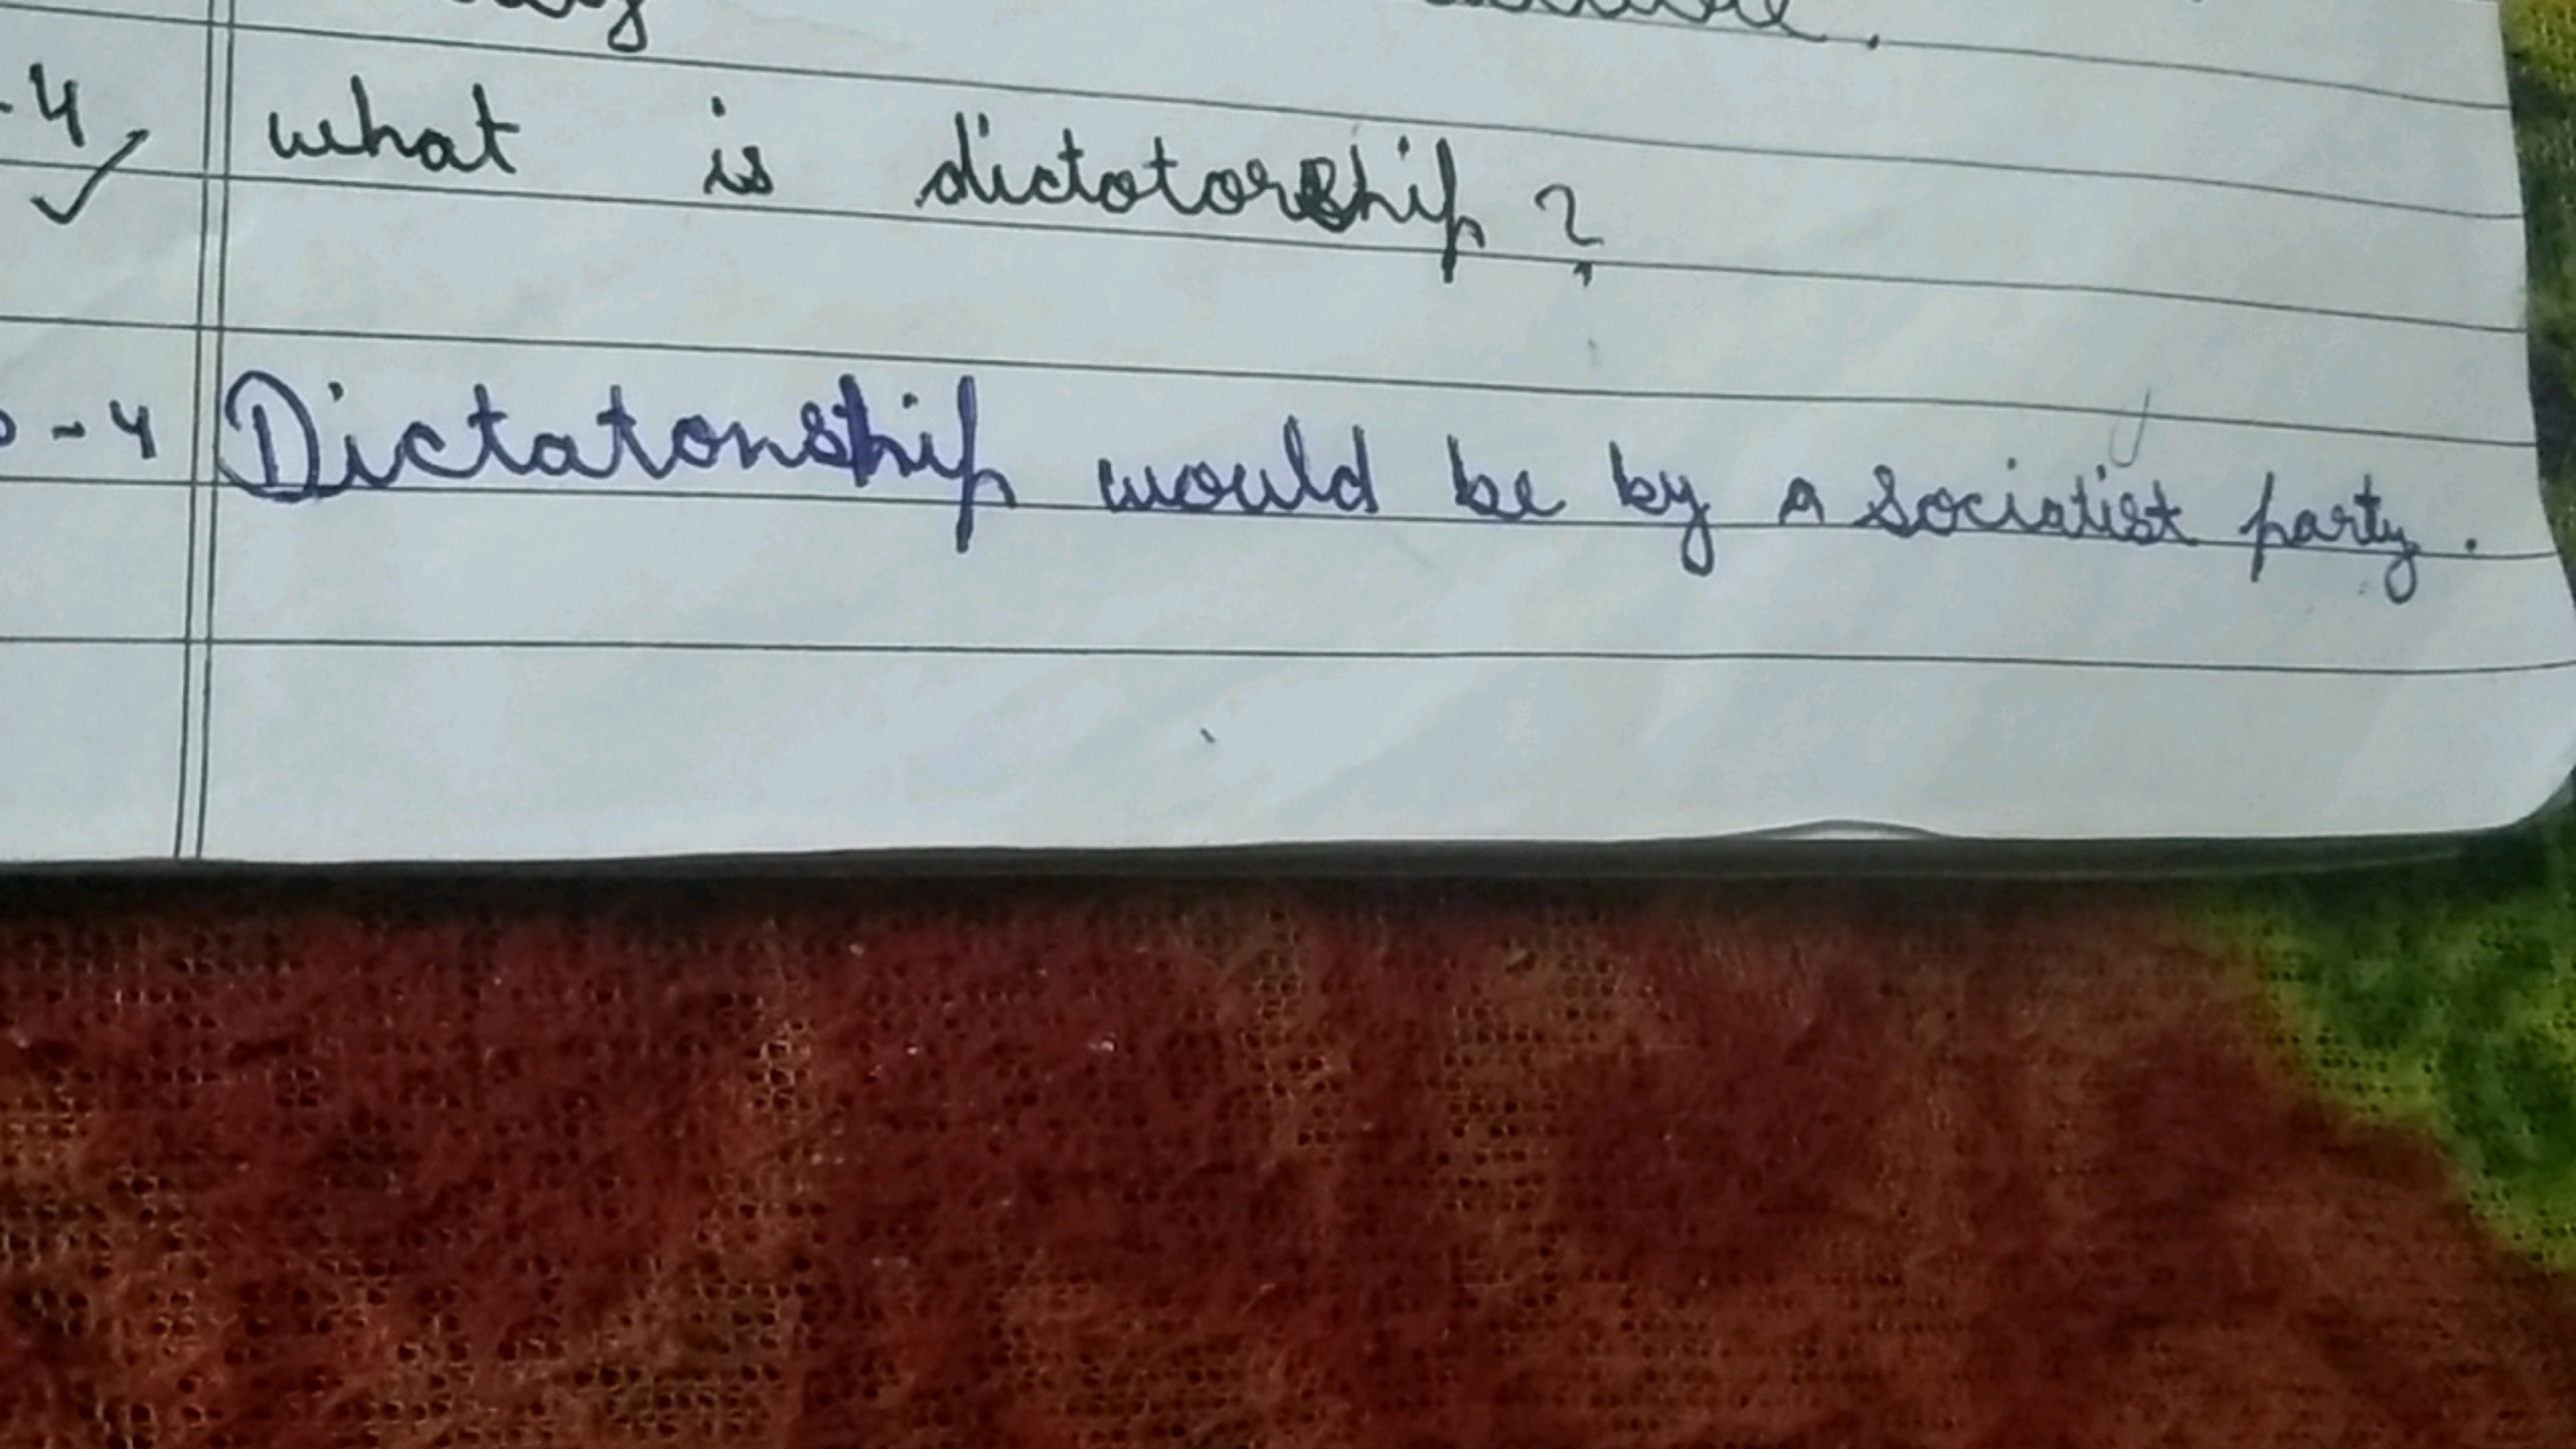 -4 what is dictotorship?
-4 Dictatonship would be by a sociatist party.